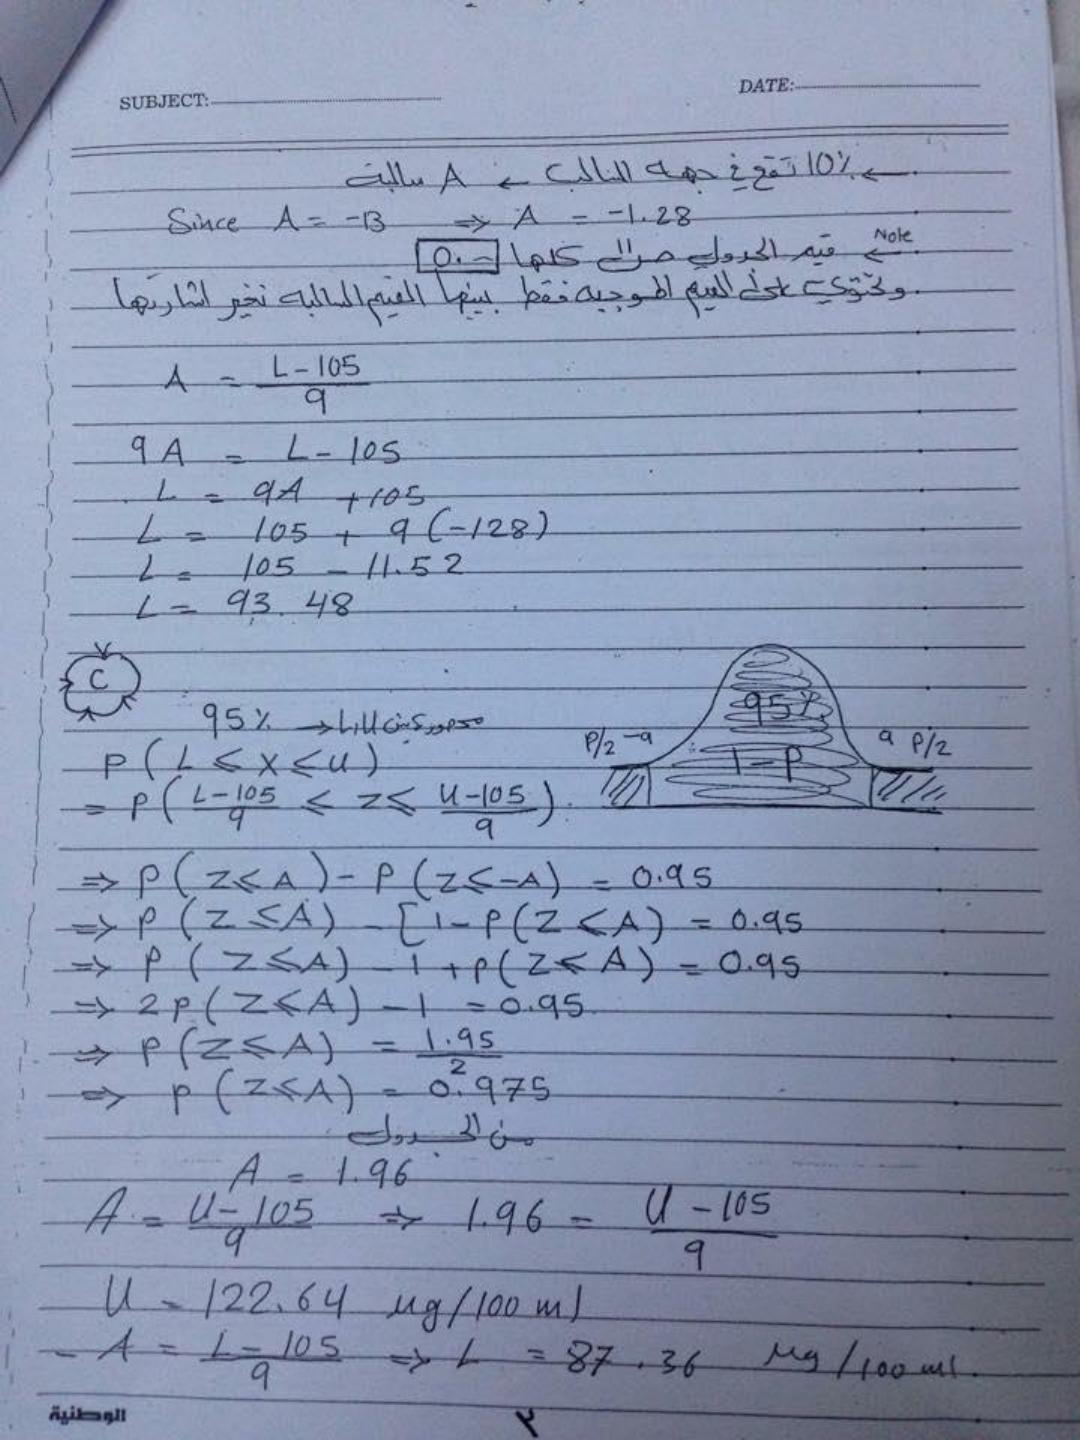 SUBJECT:
DATE:
← 10% تقع في جهة السالب ← A سالبة
Since A = -B ⇒ A = -1.28
Note ← قيم الجدول كلها 0.-
وتحتوي على القيم الموجبه فقط بينما القيم السالبه نغير اشارتها
A = L-105 / 9
9A = L-105
L = 9A +105
L = 105 + 9(-128)
L = 105 - 11.52
L = 93.48
C
95% →
P(L ≤ X ≤ U)
= P(L-105 / 9 ≤ Z ≤ U-105 / 9)
P/2 -a 95% 1-P a P/2
⇒ P(Z≤A) - P(Z≤-A) = 0.95
⇒ P(Z≤A) - [1-P(Z≤A) = 0.95
⇒ P(Z≤A) - 1 + P(Z≤A) = 0.95
⇒ 2P(Z≤A) - 1 = 0.95
⇒ P(Z≤A) = 1.95 / 2
⇒ P(Z≤A) = 0.975
من الجدول
A = 1.96
A = U-105 / 9 ⇒ 1.96 = U-105 / 9
U = 122.64 μg/100 ml
- A = L-105 / 9 ⇒ L = 87.36 μg/100 ml.
الوطنية
٢